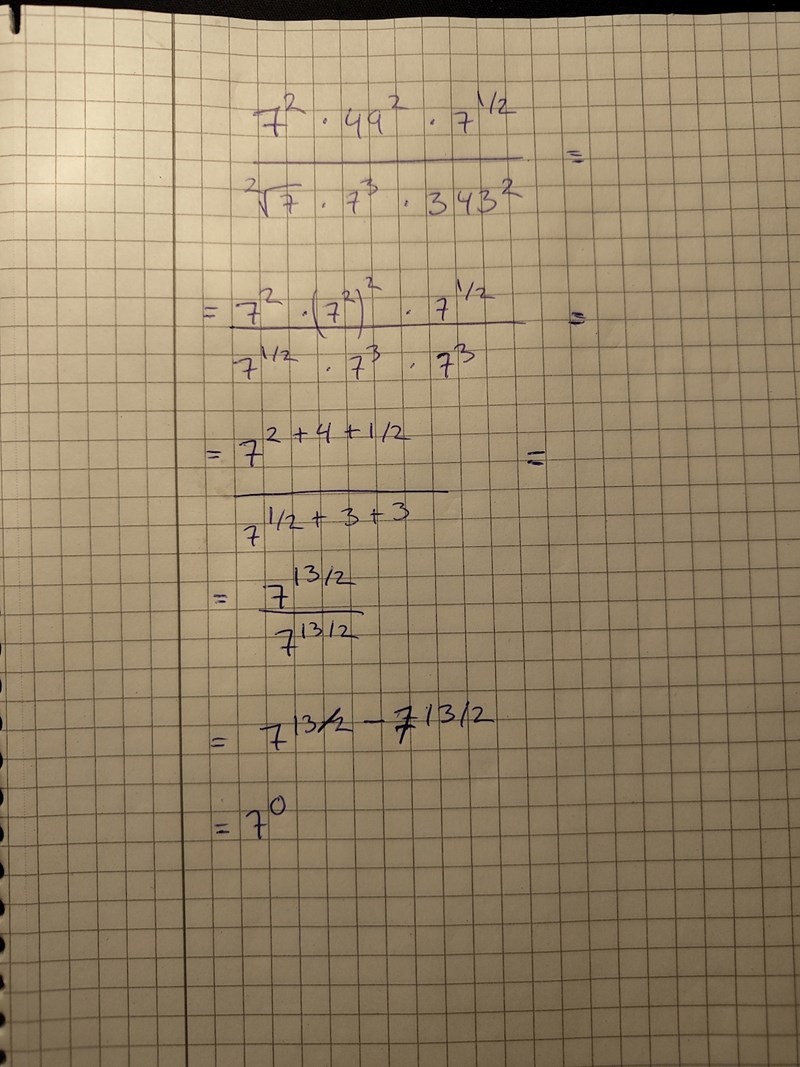 7² · 49² · 7^1/2
=
²√7 · 7³ · 343²
= 7² · (7²)² · 7^1/2 =
7^1/2 · 7³ · 7³
= 7^2 + 4 + 1/2 =
7^1/2 + 3 + 3
= 7^13/2
7^13/2
= 7^13/2 − 7^13/2
= 7⁰